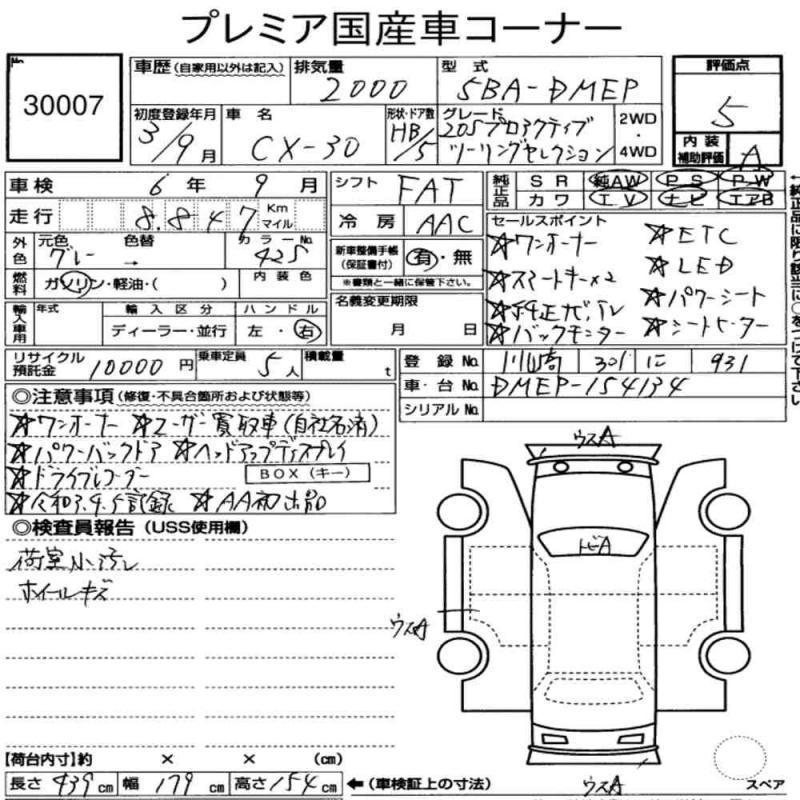 プレミア国産車コーナー
No. 30007
車歴(自家用以外は記入) 排気量 2000 型式 5BA-DMEP 評価点 5
初度登録年月 3/9月 車名 CX-30 形状・ドア数 HB/5 グレード 20Sプロアクティブツーリングセレクション 2WD・4WD 内装補助評価 A
車検 6年9月 シフト FAT 純正品 SR 純AW PS PW
走行 8.847 Km マイル 冷房 AAC カワ エV ナビ エアB
外色 元色 グレー 色替 → カラーNo. 42S 新車整備手帳(保証書付) 有・無 ※書類と一緒に保管下さい。
燃料 ガソリン・軽油・( ) 内装色 名義変更期限 月 日
輸入車用 年式 輸入区分 ディーラー・並行 ハンドル 左・右
セールスポイント
☆ワンオーナー ☆ETC
☆スマートキー×2 ☆LED
☆純正ナビTV ☆パワーシート
☆バックモニター ☆シートヒーター
リサイクル預託金 10000円 乗車定員 5人 積載量 t 登録No. 川崎 301 に 931
車台No. DMEP-154134
シリアルNo.
◎注意事項(修復・不具合箇所および状態等)
☆ワンオーナー ☆ユーザー買取車(自社名有)
☆パワーバックドア ☆ヘッドアップディスプレイ
☆ドライブレコーダー BOX(キー)
☆令和3.9.5記録 ☆AA初出品
◎検査員報告(USS使用欄)
荷室小汚レ
ホイールキズ
ウスA
トビA
ウスA
ウスA
スペア
【荷台内寸】約 × × (cm)
長さ 439cm 幅 179cm 高さ 154cm ←(車検証上の寸法)